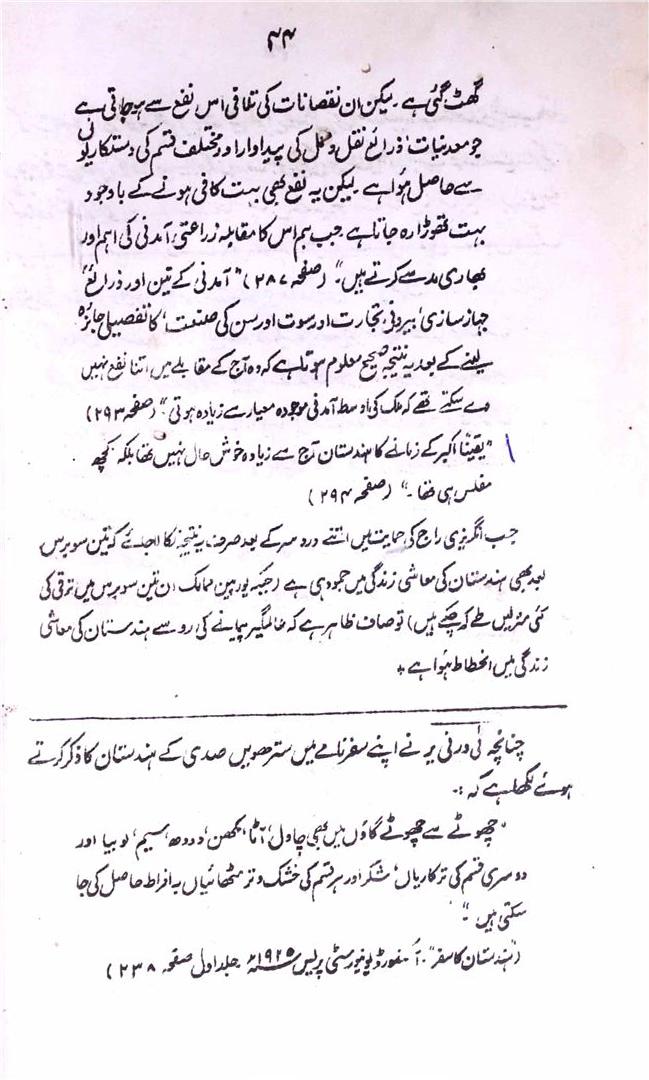 ۴۴
گھٹ گئی ہے۔ لیکن ان نقصانات کی تلافی اس نفع سے ہو جاتی ہے
جو معدنیات، ذرائع نقل و حمل کی پیداوار اور مختلف قسم کی دستکاریوں
سے حاصل ہوا ہے۔ لیکن یہ نفع بھی بہت کافی ہونے کے باوجود
بہت تھوڑا رہ جاتا ہے جب ہم اس کا مقابلہ زراعتی آمدنی کی اہم اور
بھاری مد سے کرتے ہیں۔" (صفحہ ۲۸۷) "آمدنی کے تین اور ذرائع،
جہاز سازی، بیرونی تجارت اور سوت اور سن کی صنعت، کا تفصیلی جائزہ
لینے کے بعد یہ نتیجہ صحیح معلوم ہوتا ہے کہ وہ آج کے مقابلے میں اتنا نفع نہیں
دے سکتے تھے کہ ملک کی اوسط آمدنی موجودہ معیار سے زیادہ ہوتی" (صفحہ ۲۹۳)
"یقیناً اکبر کے زمانے کا ہندستان آج سے زیادہ خوش حال نہیں تھا بلکہ کچھ
مفلس ہی تھا۔" (صفحہ ۲۹۴)
جب انگریزی راج کی حمایت میں اتنے درد سر کے بعد صرف یہ نتیجہ نکالا جائے کہ تین سو برس
بعد بھی ہندستان کی معاشی زندگی میں جمود ہی ہے (جبکہ یورپین ممالک ان تین سو برس میں ترقی کی
کئی منزلیں طے کر چکے ہیں) تو صاف ظاہر ہے کہ عالمگیر پیمانے کی رو سے ہندستان کی معاشی
زندگی میں انحطاط ہوا ہے +
چنانچہ ٹی ورنی یر نے اپنے سفرنامے میں سترھویں صدی کے ہندستان کا ذکر کرتے
ہوئے لکھا ہے کہ :۔
"چھوٹے سے چھوٹے گاؤں میں بھی چاول، آٹا، مکھن، دودھ، سیم، لوبیا اور
دوسری قسم کی ترکاریاں، شکر اور ہر قسم کی خشک و تر مٹھائیاں بہ افراط حاصل کی جا
سکتی ہیں۔"
("ہندستان کا سفر"۔ آکسفورڈ یونیورسٹی پریس ۱۹۲۵ء جلد اول صفحہ ۲۳۸)